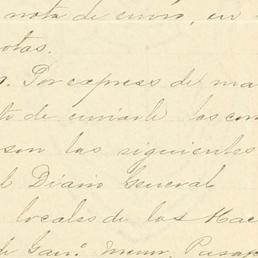 nota de envío, en
otas.
. Por express de ma
to de enviarle las con
son las siguientes
l Diario General
locales de las Hac
Gan.º Menor, Pasap